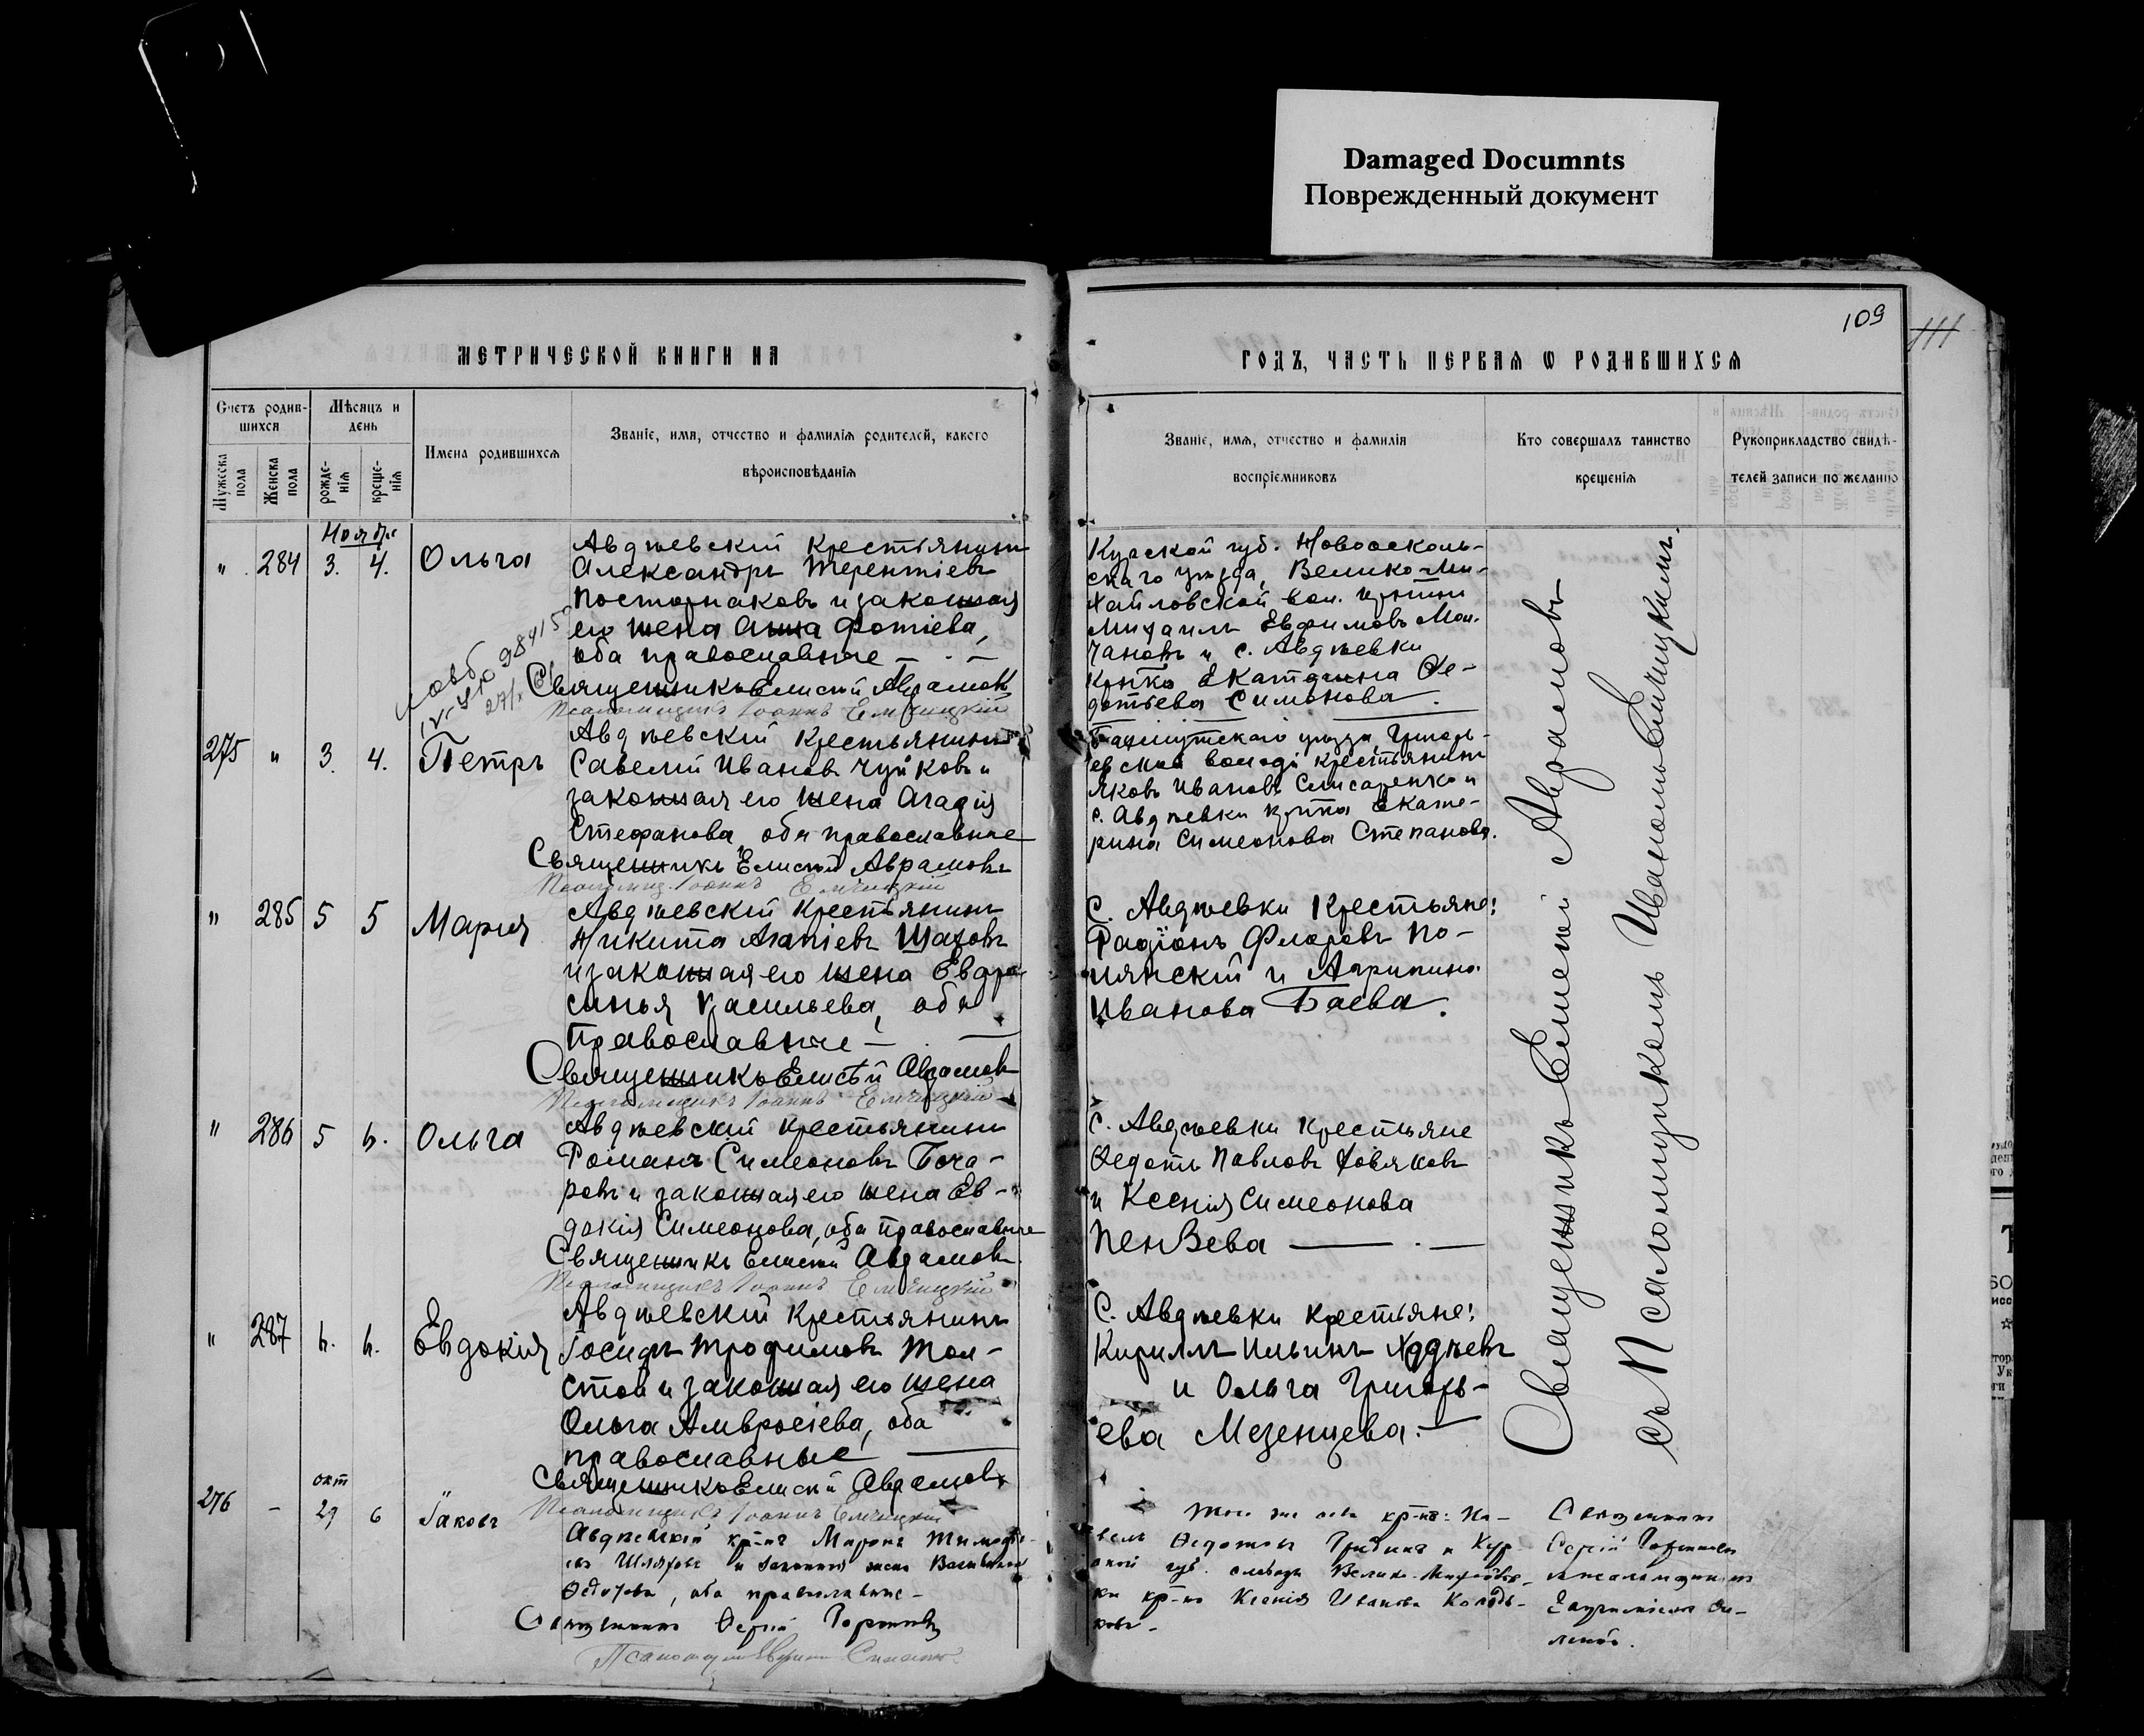 Damaged Documnts
Поврежденный документ
109
111
МЕТРИЧЕСКОЙ КНИГИ НА
ГОДЪ, ЧАСТЬ ПЕРВАЯ Ѡ РОДИВШИХСЯ
Счетъ родив-
шихся
Мѣсяцъ и
день
Мужеска
пола
Женска
пола
рожде-
нія
креще-
нія
Имена родившихся
Званіе, имя, отчество и фамилія родителей, какого
вѣроисповѣданія
Званіе, имя, отчество и фамилія
воспріемниковъ
Кто совершалъ таинство
крещенія
Рукоприкладство свидѣ-
телей записи по желанію
Ноября
" 284 3. 4. Ольга
Авдѣевскій крестьянинъ
Александръ Терентіевъ
Посторнаковъ и законная
его жена Анна Фотіева,
оба православные
Священникъ Елисей Авраамовъ
Псаломщикъ Іоаннъ Ельчицкій
Курской губ. Новоосколь-
скаго уѣзда, Велико-Ми-
хайловской вол. кр-нинъ
Михаилъ Евфимовъ Мол-
чановъ и с. Авдѣевки
Екатерина Ѳе-
дотьева Симонова
275 " 3. 4. Петръ
Авдѣевскій крестьянинъ
Савелій Ивановъ Чуйковъ и
законная его жена Агафія
Стефанова, оба православные
Священникъ Елисей Авраамовъ
Псаломщ. Іоаннъ Ельчицкій
Бахмутскаго уѣзда, Григорь-
евской волости крестьянинъ
Яковъ Ивановъ Слисаренко и
с. Авдѣевки Екате-
рина Симеонова Степанова.
" 285 5 5 Мария
Авдѣевскій крестьянинъ
Никита Агапіевъ Шаховъ
и законная его жена Евфро-
синья Васильева, оба
православные
Священникъ Елисей Авраамовъ
Псаломщикъ Іоаннъ Ельчицкій
С. Авдѣевки крестьяне:
Радіонъ Флоровъ По-
лянскій и Агрипина
Иванова Баева.
" 286 5 6. Ольга
Авдѣевскій крестьянинъ
Романъ Симеоновъ Боча-
ровъ и законная его жена Ев-
докія Симеонова, оба православные
Священникъ Елисей Авраамовъ
Псаломщикъ Іоаннъ Ельчицкій
С. Авдѣевки крестьяне
Ѳедотъ Павловъ
и Ксенія Симеонова
Пензева
" 287 6. 6. Евдокія
Авдѣевскій крестьянинъ
Іосифъ Трофимовъ Тол-
стой и законная его жена
Ольга Амвросіева, оба
православные
Священникъ Елисей Авраамовъ
Псаломщикъ Іоаннъ Ельчицкій
С. Авдѣевки крестьяне:
Кириллъ Ильинъ
и Ольга Григорь-
ева Мезенцева.
окт
276 - 29 6 Іаковъ
Авдѣевскій кр-нъ Миронъ Тимофѣ-
евъ и законная жена
оба православные
Священникъ Сергій
Того же села кр-не: Па-
велъ Ѳедотовъ и Кур-
ской губ. слободы Велико-Михайлов-
ки кр-ка Ксенія Иванова
Священникъ
Сергій
Священникъ Елисей Авраамовъ
съ Псаломщикомъ Иваномъ Ельчицкимъ.